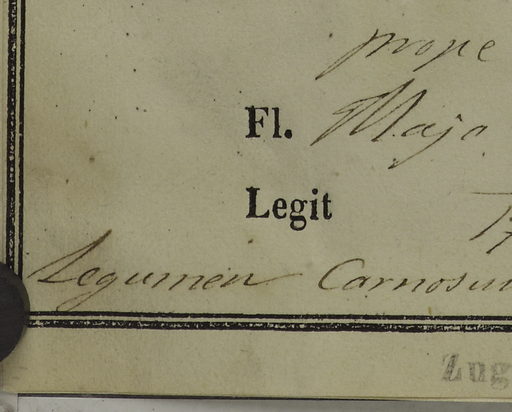 prope
Fl. Majo
Legit
Legumen Carnosum
Zug